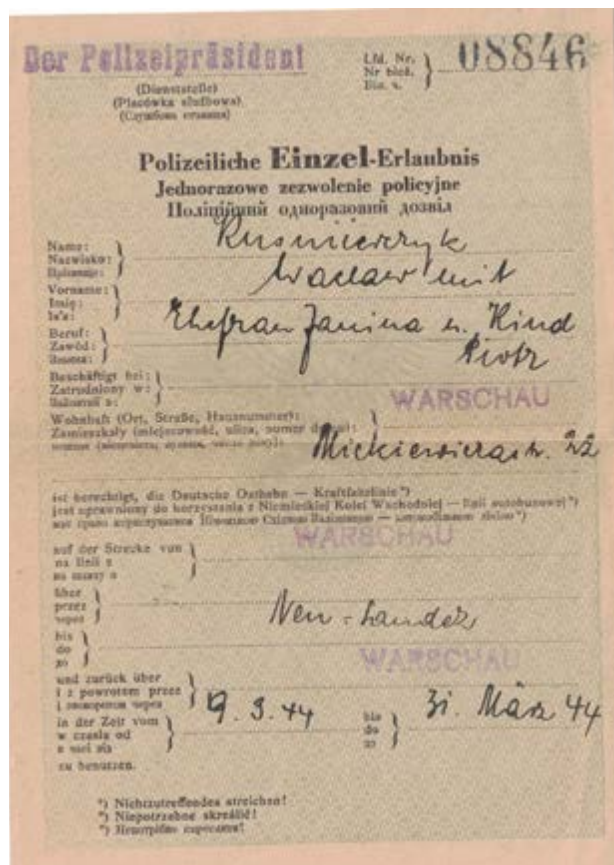 Der Polizeipräsident
(Dienststelle)
(Placówka służbowa)
(Службова станиця)
Lfd. Nr.
Nr bież.
Біж. ч.
08846
Polizeiliche Einzel-Erlaubnis
Jednorazowe zezwolenie policyjne
Поліційний одноразовий дозвіл
Name:
Nazwisko:
Прізвище:
Kuśmierczyk
Wacław mit
Vorname:
Imię:
Ім'я:
Ehefrau Janina u. Kind
Piotr
Beruf:
Zawód:
Beschäftigt bei:
Zatrudniony w:
WARSCHAU
Wohnhaft (Ort, Straße, Hausnummer):
Zamieszkały (miejscowość, ulica, numer domu):
Mickiewiczastr. 22
ist berechtigt, die Deutsche Ostbahn — Kraftfahrlinie*)
jest uprawniony do korzystania z Niemieckiej Kolei Wschodniej — linii autobusowej*)
WARSCHAU
auf der Strecke von
na linii z
über
przez
через
Neu-Sandez
bis
do
до
WARSCHAU
und zurück über
i z powrotem przez
in der Zeit vom
w czasie od
в часі від
19. 3. 44
bis
do
до
31. März 44
zu benutzen.
*) Nichtzutreffendes streichen!
*) Niepotrzebne skreślić!
*) Непотрібне